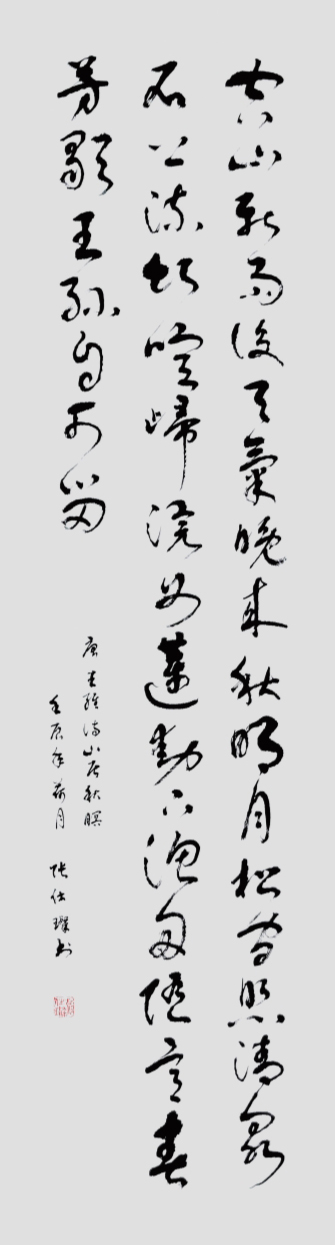 空山新雨後天氣晚來秋明月松間照清泉
石上流竹喧歸浣女蓮動下漁舟隨意春
芳歇王孫自可留
唐王維詩山居秋暝
壬辰年月 張仕書